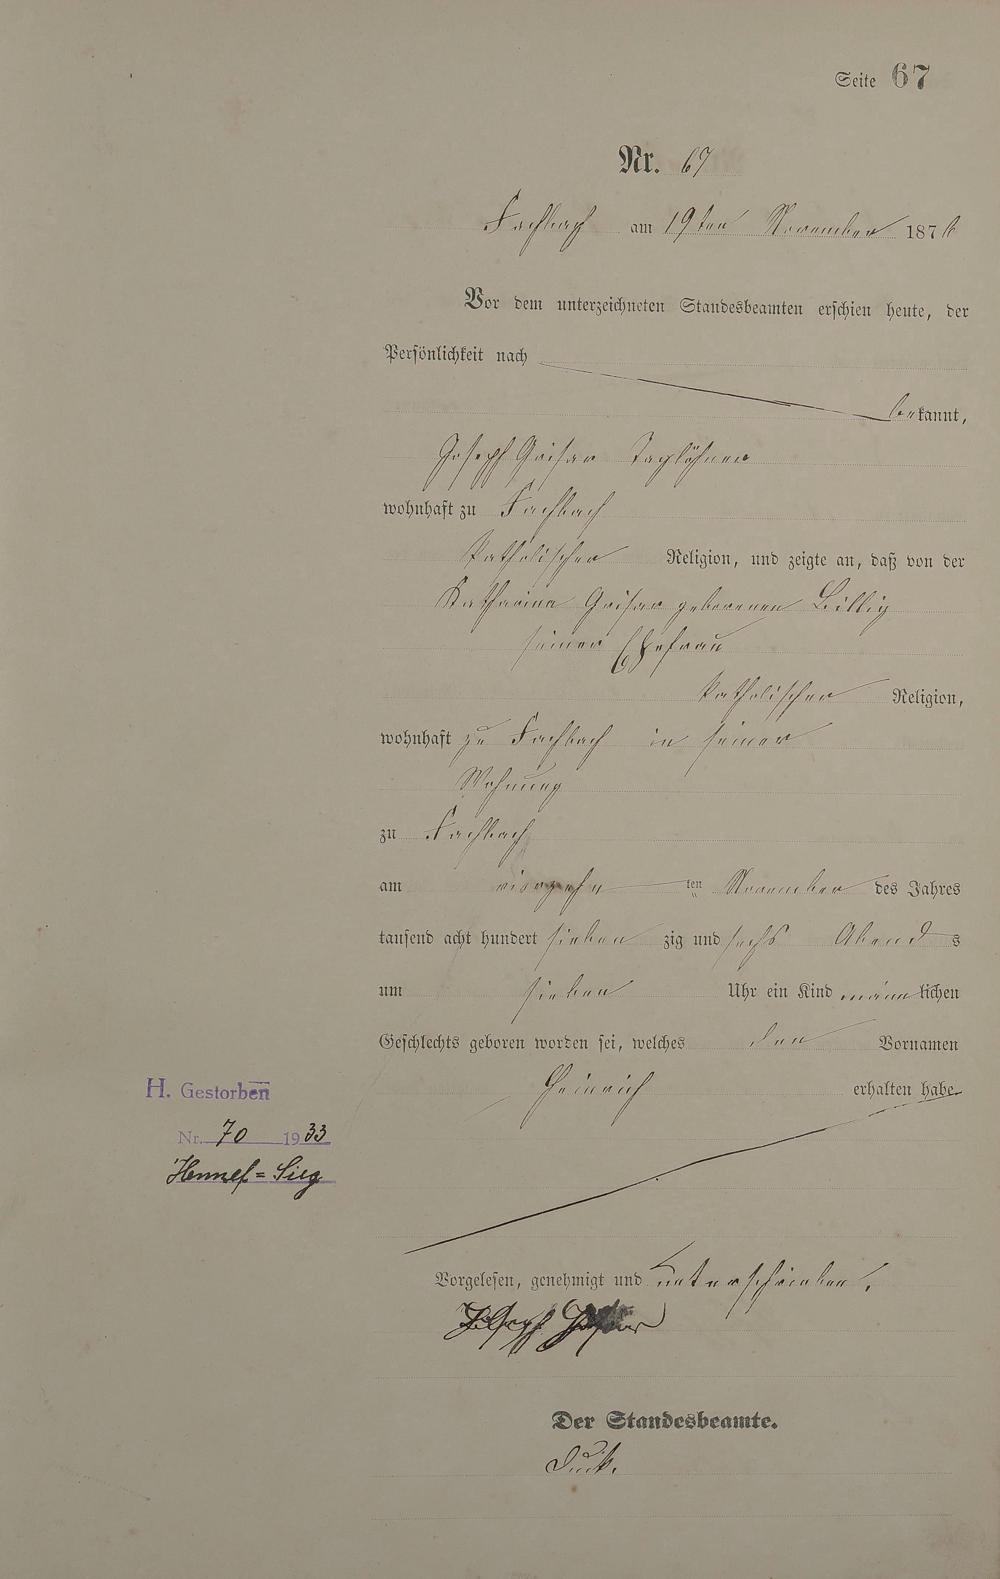 Seite 67
Nr. 67
Fachbach am 19ten November 1876
Vor dem unterzeichneten Standesbeamten erschien heute, der
Persönlichkeit nach
bekannt,
Joseph Grisar Taglöhner
wohnhaft zu Fachbach
katholischer Religion, und zeigte an, daß von der
Katharina Grisar geborenen Billig
seiner Ehefrau
katholischer Religion,
wohnhaft zu Fachbach in seiner
Wohnung
zu Fachbach
am vierzehn ten November des Jahres
tausend acht hundert sieben zig und sechs Abend s
um sieben Uhr ein Kind männlichen
Geschlechts geboren worden sei, welches den Vornamen
Heinrich erhalten habe
H. Gestorben
Nr. 70 1933
Hennef=Sieg
Vorgelesen, genehmigt und unterschrieben.
Joseph
Der Standesbeamte.